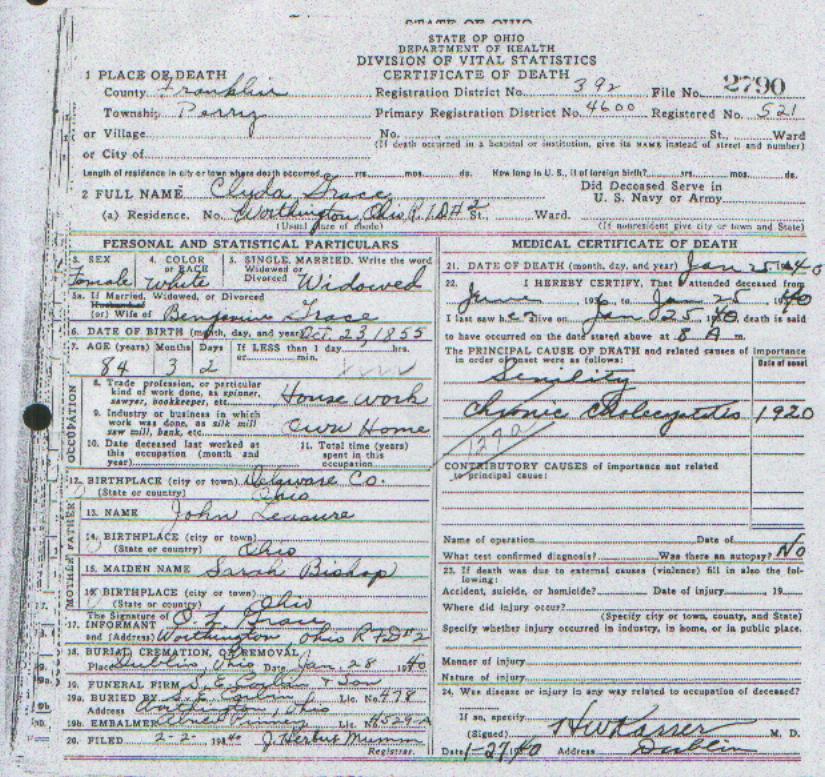 STATE OF OHIO
STATE OF OHIO
DEPARTMENT OF HEALTH
DIVISION OF VITAL STATISTICS
CERTIFICATE OF DEATH
1 PLACE OF DEATH
County Franklin Registration District No. 392 File No. 2790
Township Perry Primary Registration District No. 4600 Registered No. 521
or Village No. St., Ward
(If death occurred in a hospital or institution, give its NAME instead of street and number)
or City of
Length of residence in city or town where death occurred yrs. mos. ds. How long in U. S., if of foreign birth? yrs. mos. ds.
2 FULL NAME Clyda Grace Did Deceased Serve in
U. S. Navy or Army
(a) Residence. No. Worthington, Ohio R.F.D#2 St., Ward.
(Usual place of abode) (If nonresident give city or town and State)
PERSONAL AND STATISTICAL PARTICULARS
3. SEX 4. COLOR or RACE 5. SINGLE, MARRIED, Write the word
Widowed or
Divorced
Female White Widowed
5a. If Married, Widowed, or Divorced
Husband of
(or) Wife of Benjamin Grace
6. DATE OF BIRTH (month, day, and year) Oct. 23, 1855
7. AGE (years) Months Days If LESS than 1 day hrs.
or min.
84 3 2
OCCUPATION
8. Trade profession, or particular
kind of work done, as spinner,
sawyer, bookkeeper, etc. House work
9. Industry or business in which
work was done, as silk mill
saw mill, bank, etc. Own Home
10. Date deceased last worked at
this occupation (month and
year)
11. Total time (years)
spent in this
occupation
12. BIRTHPLACE (city or town) Delaware Co.
(State or country) Ohio
FATHER
13. NAME John Leasure
14. BIRTHPLACE (city or town)
(State or country) Ohio
MOTHER
15. MAIDEN NAME Sarah Bishop
16. BIRTHPLACE (city or town)
(State or country) Ohio
The Signature of
17. INFORMANT Grace
and (Address) Worthington, Ohio R F D #2
18. BURIAL, CREMATION, OR REMOVAL
Place Dublin, Ohio Date Jan. 28 1940
19. FUNERAL FIRM & Son
19a. BURIED BY Lic. No. 478
Address Worthington, Ohio
19b. EMBALMER Lic. No. 4529-A
20. FILED 2-2- 1940 J. Herbert Mumm
Registrar.
MEDICAL CERTIFICATE OF DEATH
21. DATE OF DEATH (month, day, and year) Jan 25 1940
22. I HEREBY CERTIFY, That I attended deceased from
June, 193 to Jan 25, 1940
I last saw her alive on Jan 25, 1940, death is said
to have occurred on the date stated above at 8 A m.
The PRINCIPAL CAUSE OF DEATH and related causes of importance
in order of onset were as follows: Date of onset
Senility
Chronic Cholecystitis 1920
CONTRIBUTORY CAUSES of importance not related
to principal cause:
Name of operation Date of
What test confirmed diagnosis? Was there an autopsy? No
23. If death was due to external causes (violence) fill in also the fol-
lowing:
Accident, suicide, or homicide? Date of injury 19
Where did injury occur?
(Specify city or town, county, and State)
Specify whether injury occurred in industry, in home, or in public place.
Manner of injury
Nature of injury
24. Was disease or injury in any way related to occupation of deceased?
If so, specify
(Signed) H W Kasser M. D.
Date 1-27 1940 Address Dublin